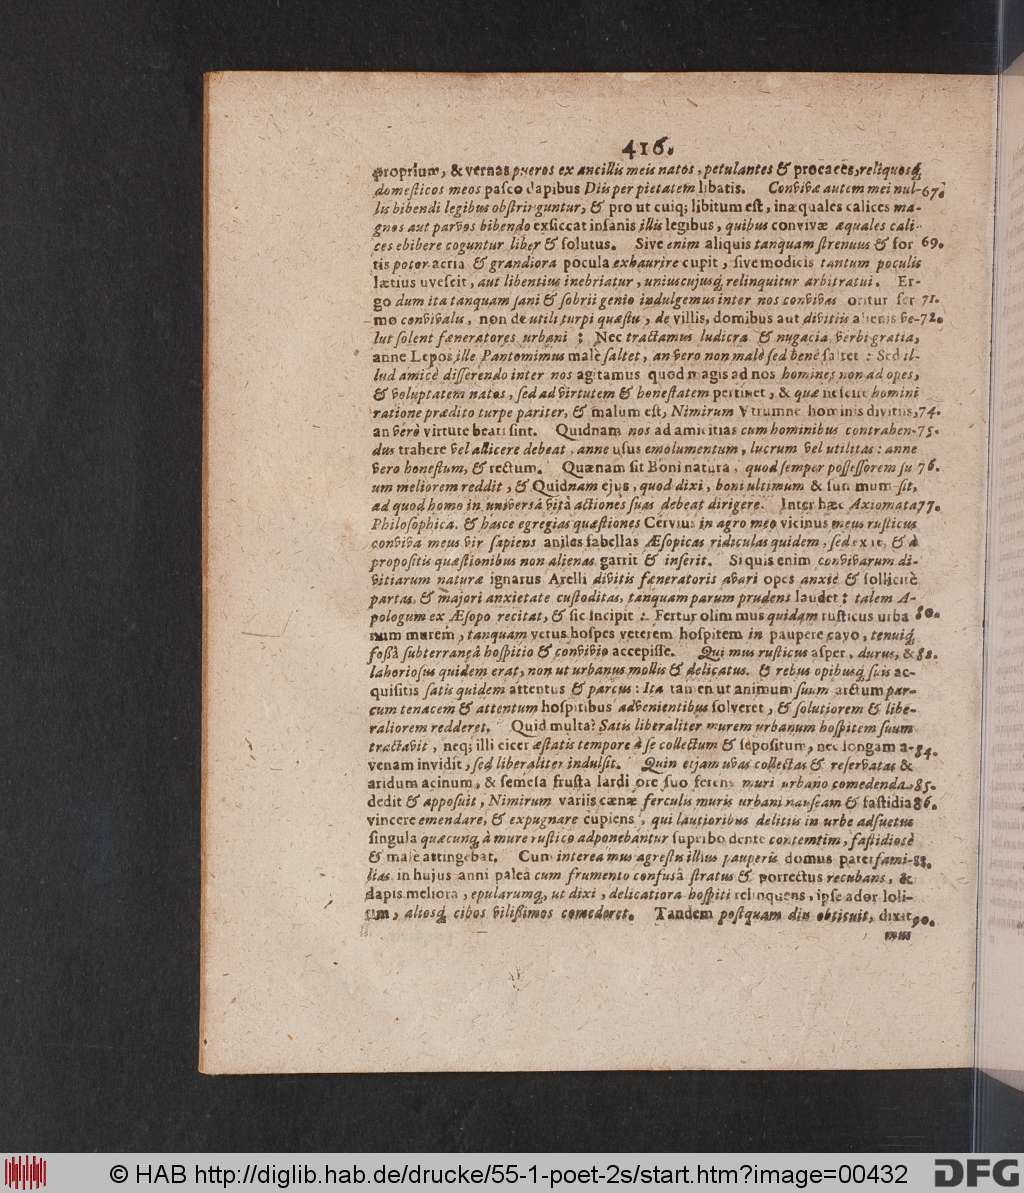 416.
proprium, & vernas pueros ex ancillis meis natos, petulantes & procaces, reliquosq́
domesticos meos pasco dapibus Diis per pietatem libatis. Convivæ autem mei nul- 67.
lis bibendi legibus obstringuntur, & pro ut cuiq; libitum est, inæquales calices ma-
gnos aut parvos bibendo exsiccat insanis illis legibus, quibus convivæ æquales cali-
ces ebibere coguntur liber & solutus. Sive enim aliquis tanquam strenuus & for 69.
tis potor acria & grandiora pocula exhaurire cupit, sive modicis tantum poculis
lætius uvescit, aut libentius inebriatur, uniuscujusq́ relinquitur arbitratui. Er-
go dum ita tanquam sani & sobrii genio indulgemus inter nos convivas oritur ser 71.
mo convivalis, non de utili turpi quæstu, de villis, domibus aut divitiis alienis ve- 72.
lut solent fæneratores urbani : Nec tractamus ludicra & nugacia verbi gratia,
anne Lepos ille Pantomimus malè saltet, an vero non malè sed benè saltet : Sed il-
lud amicè disserendo inter nos agitamus quod magis ad nos homines non ad opes,
& voluptatem natos, sed ad virtutem & honestatem pertinet, & quæ nescire homini
ratione prædito turpe pariter, & malum est, Nimirum Utrumne hominis divitiis, 74.
an verò virtute beati sint. Quidnam nos ad amicitias cum hominibus contrahen- 75.
dus trahere vel allicere debeat, anne usus emolumentum, lucrum vel utilitas: anne
vero honestum, & rectum. Quænam sit Boni natura, quod semper possessorem su 76.
um meliorem reddit, & Quidnam ejus, quod dixi, boni ultimum & summum sit,
ad quod homo in universâ vitâ actiones suas debeat dirigere. Inter hæc Axiomata 77.
Philosophica, & hasce egregias quæstiones Cervius in agro meo vicinus meus rusticus
conviva meus vir sapiens aniles fabellas Æsopicas ridiculas quidem, sed ex re, & à
propositis quæstionibus non alienas garrit & inserit. Si quis enim convivarum di-
vitiarum naturæ ignarus Arelli divitis fæneratoris avari opes anxiè & sollicitè
partas, & majori anxietate custoditas, tanquam parum prudens laudet : talem A-
pologum ex Æsopo recitat, & sic incipit : Fertur olim mus quidam rusticus urba 80.
num murem, tanquam vetus hospes veterem hospitem in paupere cavo, tenuiq́
fossâ subterraneâ hospitio & convivio accepisse. Qui mus rusticus asper, durus, & 82.
laboriosus quidem erat, non ut urbanus mollis & delicatus. & rebus opibusq́ suis ac-
quisitis satis quidem attentus & parcus : Ita tamen ut animum suum arctum par-
cum tenacem & attentum hospitibus advenientibus solveret, & solutiorem & libe-
raliorem redderet. Quid multa? Satis liberaliter murem urbanum hospitem suum
tractavit, neq; illi cicer æstatis tempore à se collectum & sepositum, nec longam a- 84.
venam invidit, sed liberaliter indulsit. Quin etjam uvas collectas & reservatas &
aridum acinum, & semesa frusta lardi ore suo ferens muri urbano comedenda, 85.
dedit & apposuit, Nimirum variis cænæ ferculis muris urbani nauseam & fastidia 86.
vincere emendare, & expugnare cupiens, qui lautioribus delitiis in urbe adsuetus
singula quæcunq́ à mure rustico adponebantur superbo dente contemtim, fastidiosè
& malè attingebat. Cum interea mus agrestis illius pauperis domus paterfami- 88.
lias in hujus anni paleâ cum frumento confusâ stratus & porrectus recubans, &
dapis meliora, epularumq́, ut dixi, delicatiora hospiti relinquens, ipse ador loli-
um, aliosq́ cibos vilissimos comederet. Tandem postquam diu obticuit, dixit 90.
mus
© HAB http://diglib.hab.de/drucke/55-1-poet-2s/start.htm?image=00432
DFG